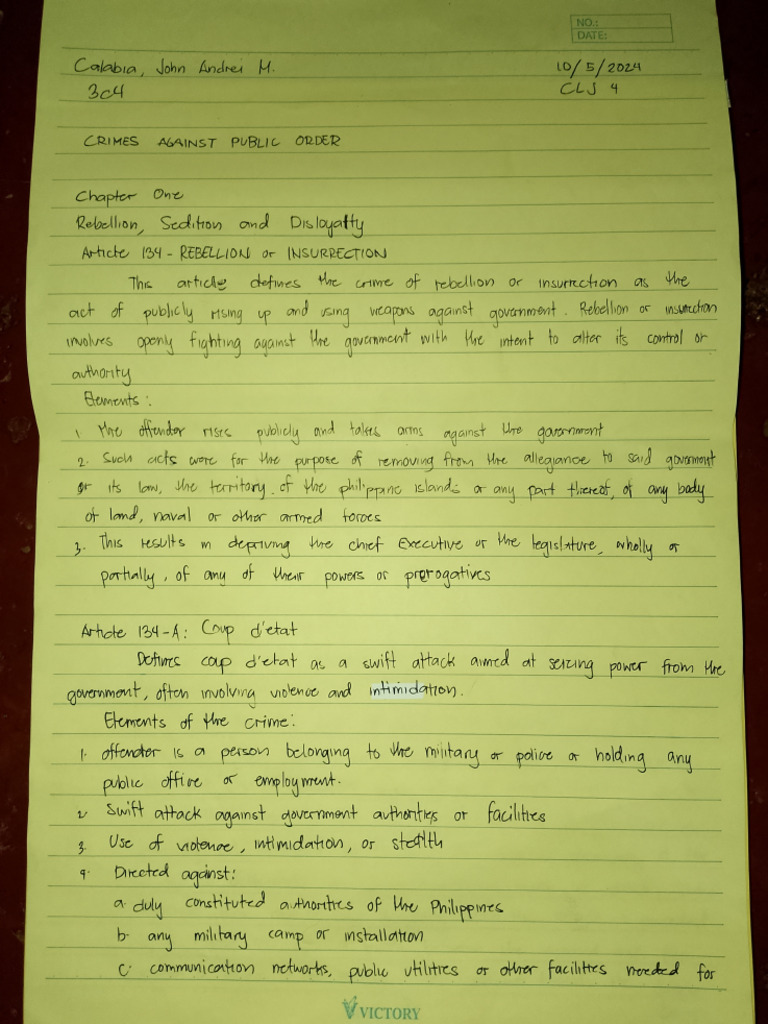 NO.:
DATE:
Calabia, John Andrei M.
10/5/2024
3C4
CLJ 4
CRIMES AGAINST PUBLIC ORDER
Chapter One
Rebellion, Sedition and Disloyalty
Article 134 - REBELLION or INSURRECTION
This article defines the crime of rebellion or insurrection as the
act of publicly rising up and using weapons against government. Rebellion or insurrection
involves openly fighting against the government with the intent to alter its control or
authority
Elements:
1. the offender rises publicly and takes arms against the government
2. Such acts were for the purpose of removing from the allegiance to said government
or its law, the territory of the philippine islands or any part thereof, of any body
of land, naval or other armed forces
3. This results in depriving the chief Executive or the legislature, wholly or
partially, of any of their powers or prerogatives
Article 134-A: Coup d'etat
Defines coup d'etat as a swift attack aimed at seizing power from the
government, often involving violence and intimidation.
Elements of the crime:
1. offender is a person belonging to the military or police or holding any
public office or employment.
2. Swift attack against government authorities or facilities
3. Use of violence, intimidation, or stealth
4. Directed against:
a. duly constituted authorities of the Philippines
b. any military camp or installation
c. communication networks, public utilities or other facilities needed for
VICTORY